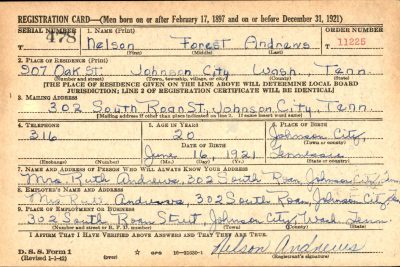 REGISTRATION CARD—(Men born on or after February 17, 1897 and on or before December 31, 1921)
SERIAL NUMBER 1. NAME (Print) ORDER NUMBER
T 478 Nelson Forest Andrews T 11225
(First) (Middle) (Last)
2. PLACE OF RESIDENCE (Print)
907 Oak St. Johnson City Wash. Tenn.
(Number and street) (Town, township, village, or city) (County) (State)
[THE PLACE OF RESIDENCE GIVEN ON THE LINE ABOVE WILL DETERMINE LOCAL BOARD
JURISDICTION; LINE 2 OF REGISTRATION CERTIFICATE WILL BE IDENTICAL]
3. MAILING ADDRESS
302 South Roan St, Johnson City, Tenn.
[Mailing address if other than place indicated on line 2. If same insert word same]
4. TELEPHONE 5. AGE IN YEARS 6. PLACE OF BIRTH
316 20 Johnson City,
DATE OF BIRTH (Town or county)
June 16, 1921 Tennessee
(Exchange) (Number) (Mo.) (Day) (Yr.) (State or country)
7. NAME AND ADDRESS OF PERSON WHO WILL ALWAYS KNOW YOUR ADDRESS
Mrs. Ruth Andrews, 302 South Roan, Johnson City, Tenn
8. EMPLOYER'S NAME AND ADDRESS
Mrs. Ruth Andrews, 302 South Roan, Johnson City
9. PLACE OF EMPLOYMENT OR BUSINESS
302 South Roan Street, Johnson City, Wash, Tenn.
(Number and street or R. F. D. number) (Town) (County) (State)
I AFFIRM THAT I HAVE VERIFIED ABOVE ANSWERS AND THAT THEY ARE TRUE.
D. S. S. Form 1
(Revised 1-1-42) (over) Nelson Andrews
(Registrant's signature)